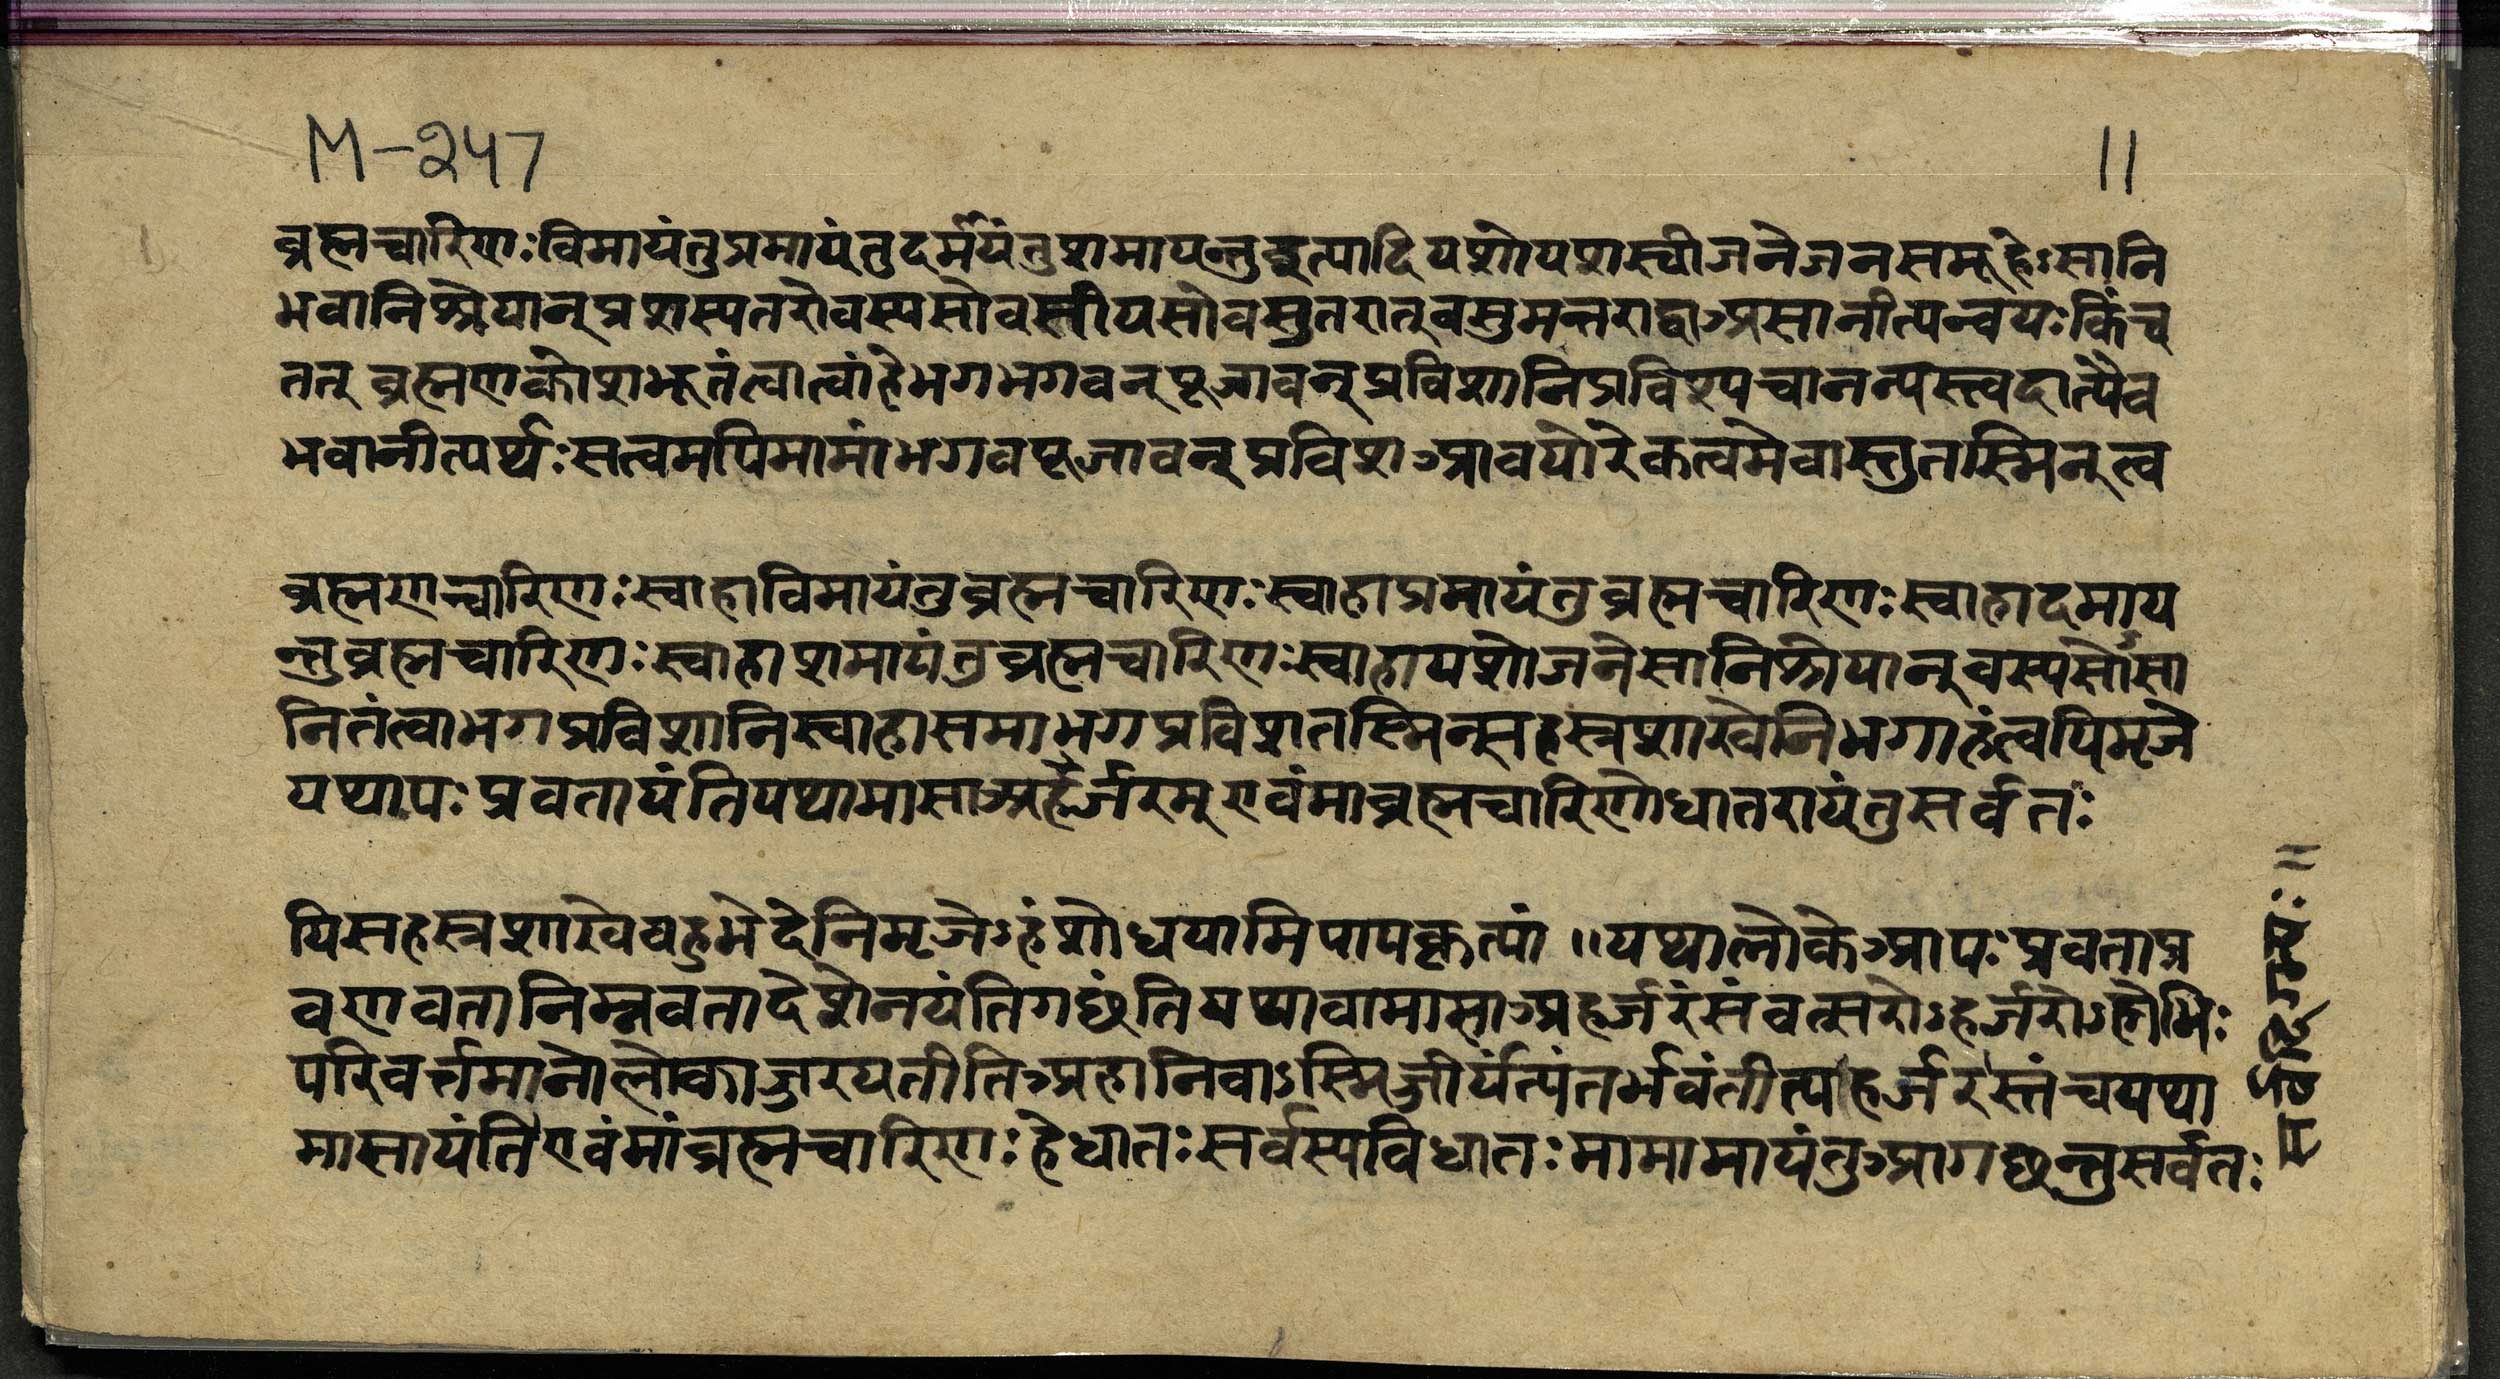 M-247
11
ब्रह्मचारिणः विमायंतु प्रमायंतु दमायंतु शमायन्त्वित्यादि यशोयशस्वीजनेजनसमूहेऽसानि
भवानि श्रेयान् प्रशस्यतरो वस्यसो वसीयसो वसुतरात् वसुमत्तराद्वा असानीत्यन्वयः किंच
तत् ब्रह्मण कोशभूतं त्वा त्वां हे भग भगवन् पूजावन् प्रविशानि प्रविश्य चानन्यस्त्वदात्मैव
भवानीत्यर्थः सत्वमपि मा मां भगव पूजावन् प्रविश आवयोरेकत्वमेवास्तु तस्मिन् त्व
ब्रह्मणाचारिणः स्वाहा विमायंतु ब्रह्मचारिणः स्वाहा प्रमायंतु ब्रह्मचारिणः स्वाहा दमाय
न्तु ब्रह्मचारिणः स्वाहा शमायंतु ब्रह्मचारिणः स्वाहा यशोजनेसानि श्रेयान् वस्यसोसा
नि तंत्वाभगप्रविशानि स्वाहा समाभगप्रविश तस्मिन् सहस्रशाखे निभगाहंत्वयिमृजे
यथापः प्रवतायंति यथामासाअहर्जरम् एवंमाब्रह्मचारिणो धातरायंतुसर्वतः
यि सहस्रशाखे बहुभेदे निमृजेऽहं शोधयामि पापकृत्यां ॥ यथालोके आपः प्रवता प्र
वणवता निम्नवता देशेन यंति गछंति यथा वा मासा अहर्जरं संवत्सरोऽहर्जरोऽहोभिः
परिवर्त्तमानो लोकाञ्जरयतीति अहानि वाऽस्मिञ्जीर्यंत्यंतर्भवंतीत्यहर्जरस्तं च यथा
मासायंति एवं मां ब्रह्मचारिणः हे धातः सर्वस्य विधातः मामामायंतु आगछन्तु सर्वतः